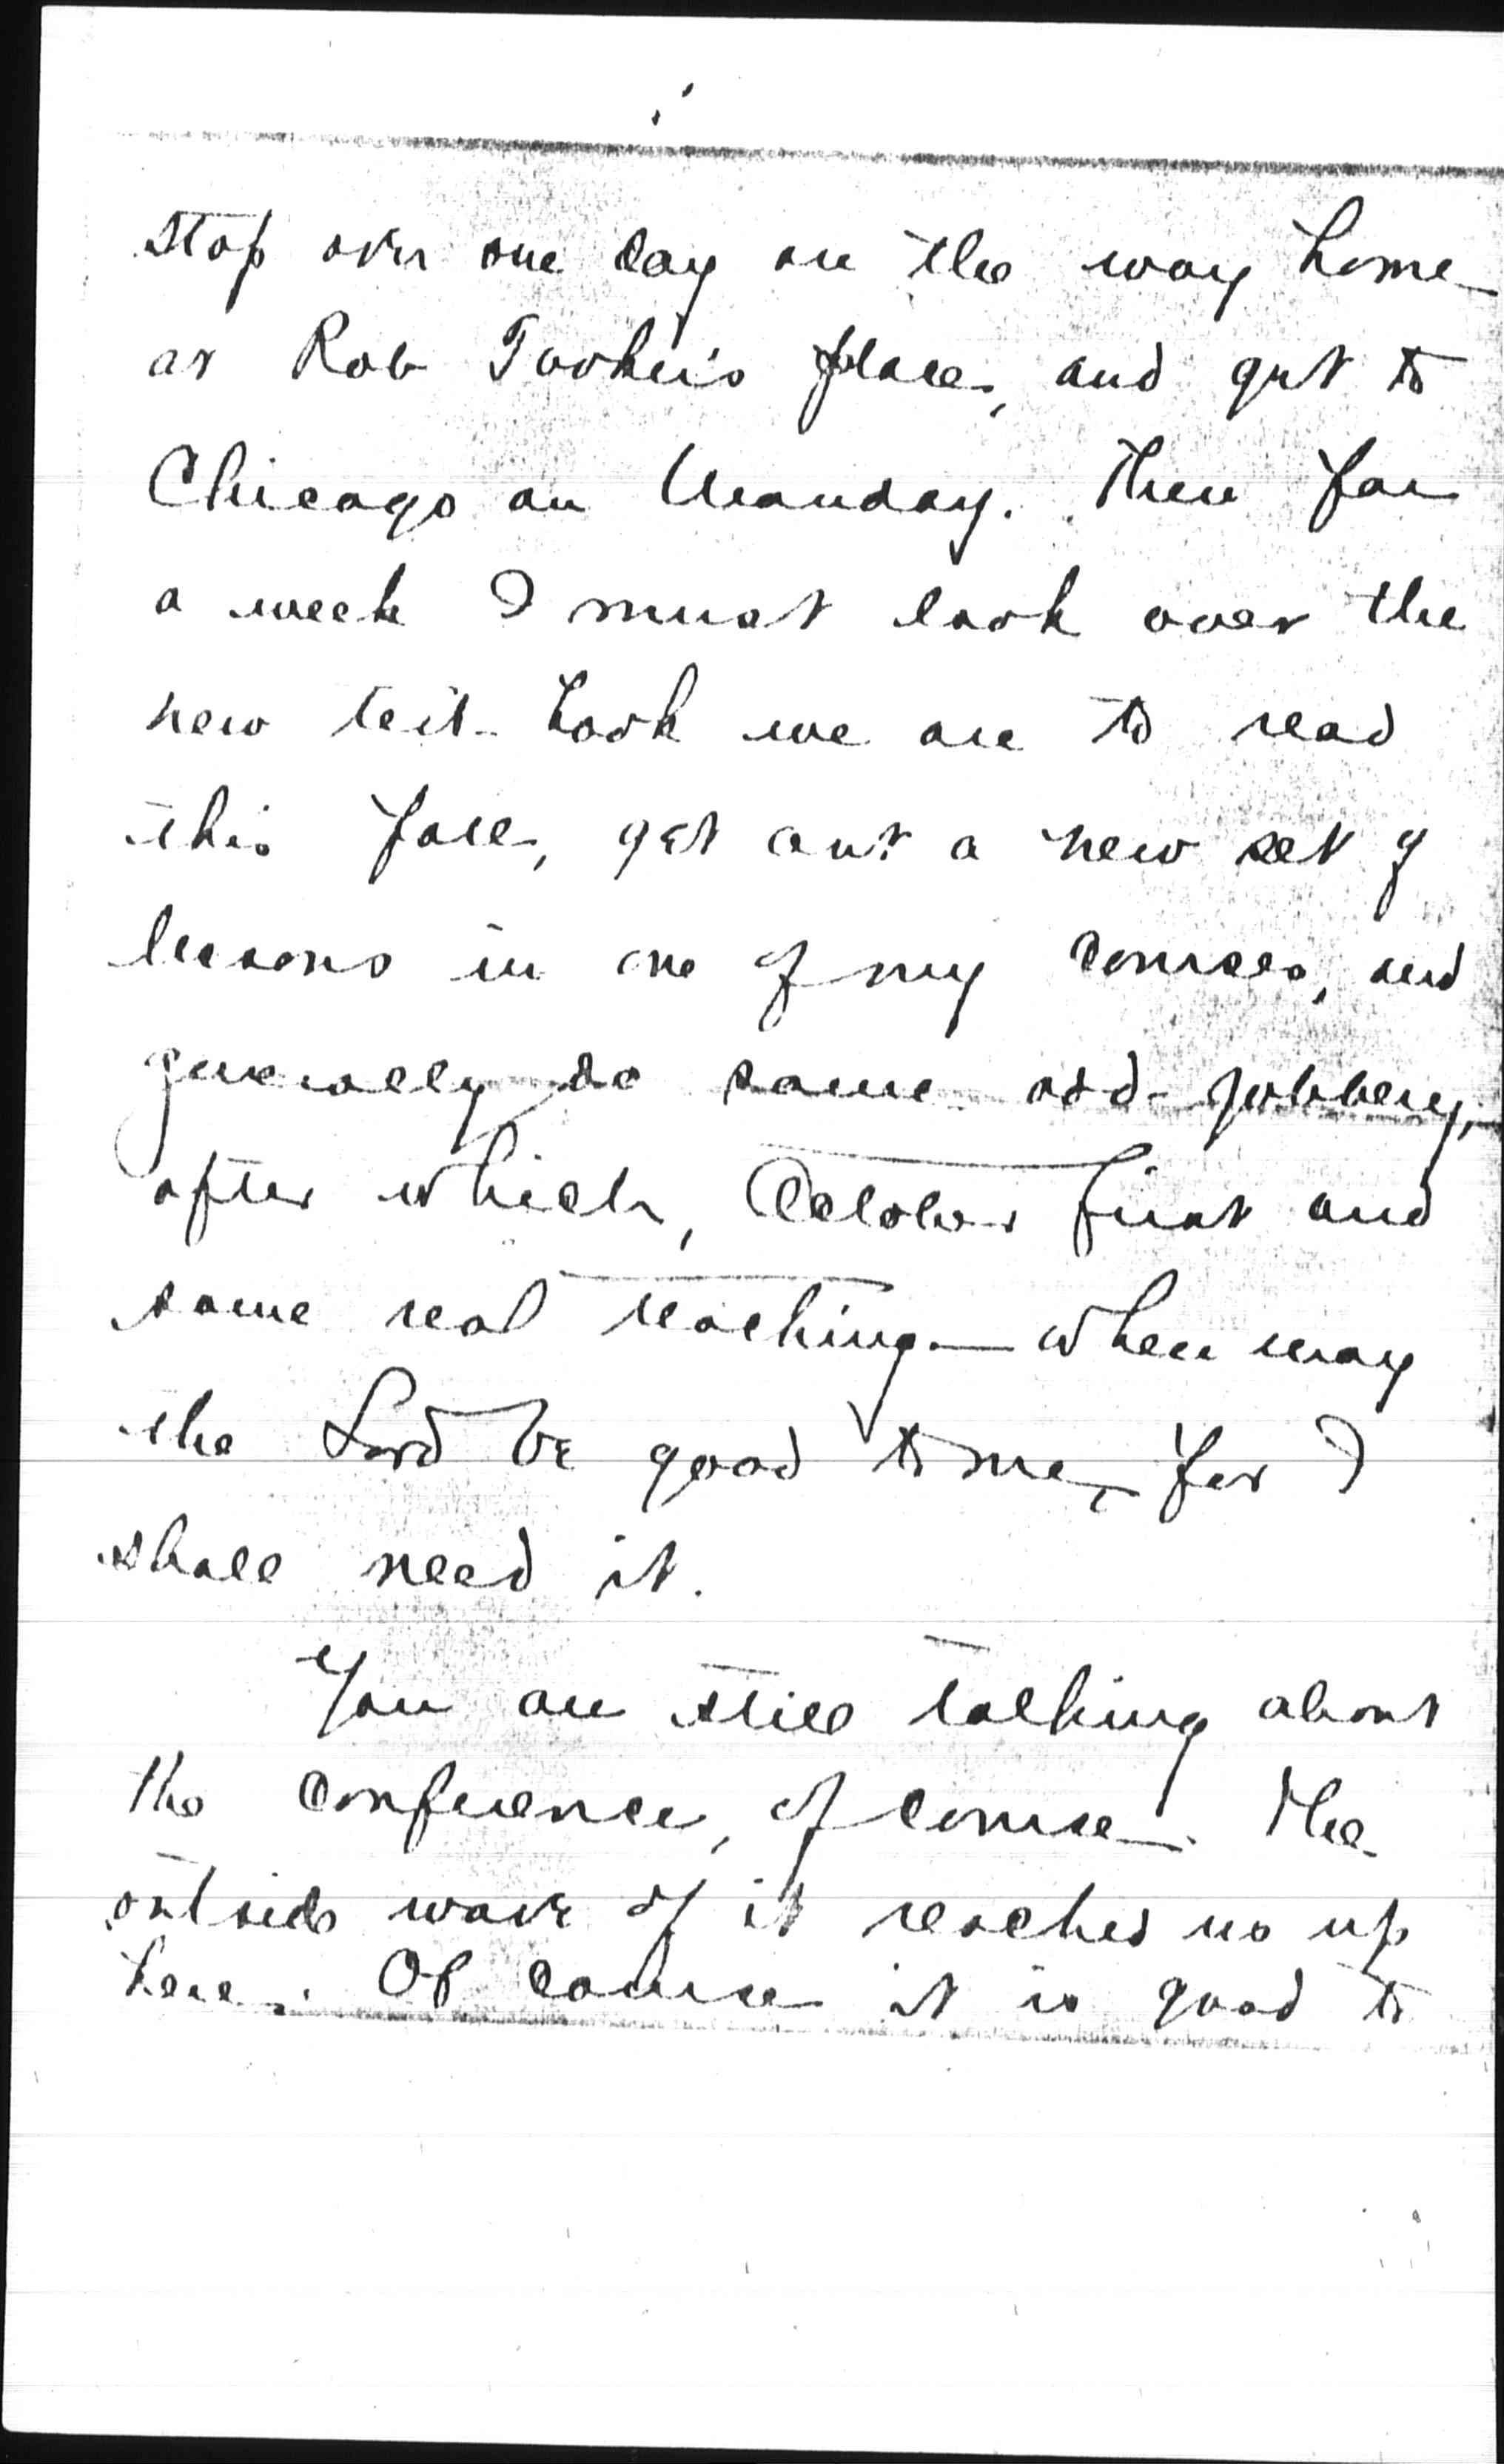 stop over one day on the way home
at Rob place, and get to
Chicago on Monday. Then for
a week I must look over the
new text-book we are to read
this fall, get out a new set of
lessons in one of my courses, and
generally do some odd-jobbery,
after which, October first and
some real teaching — when may
the Lord be good to me, for I
shall need it.
You are still talking about
the conference, of course. The
outside wave of it reached us up
here. Of course it is good to